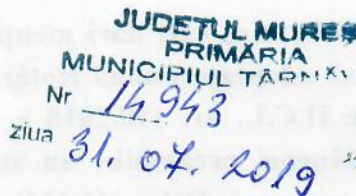 JUDEȚUL MUREȘ
PRIMĂRIA
MUNICIPIUL
Nr 14943
ziua 31. 07. 2019